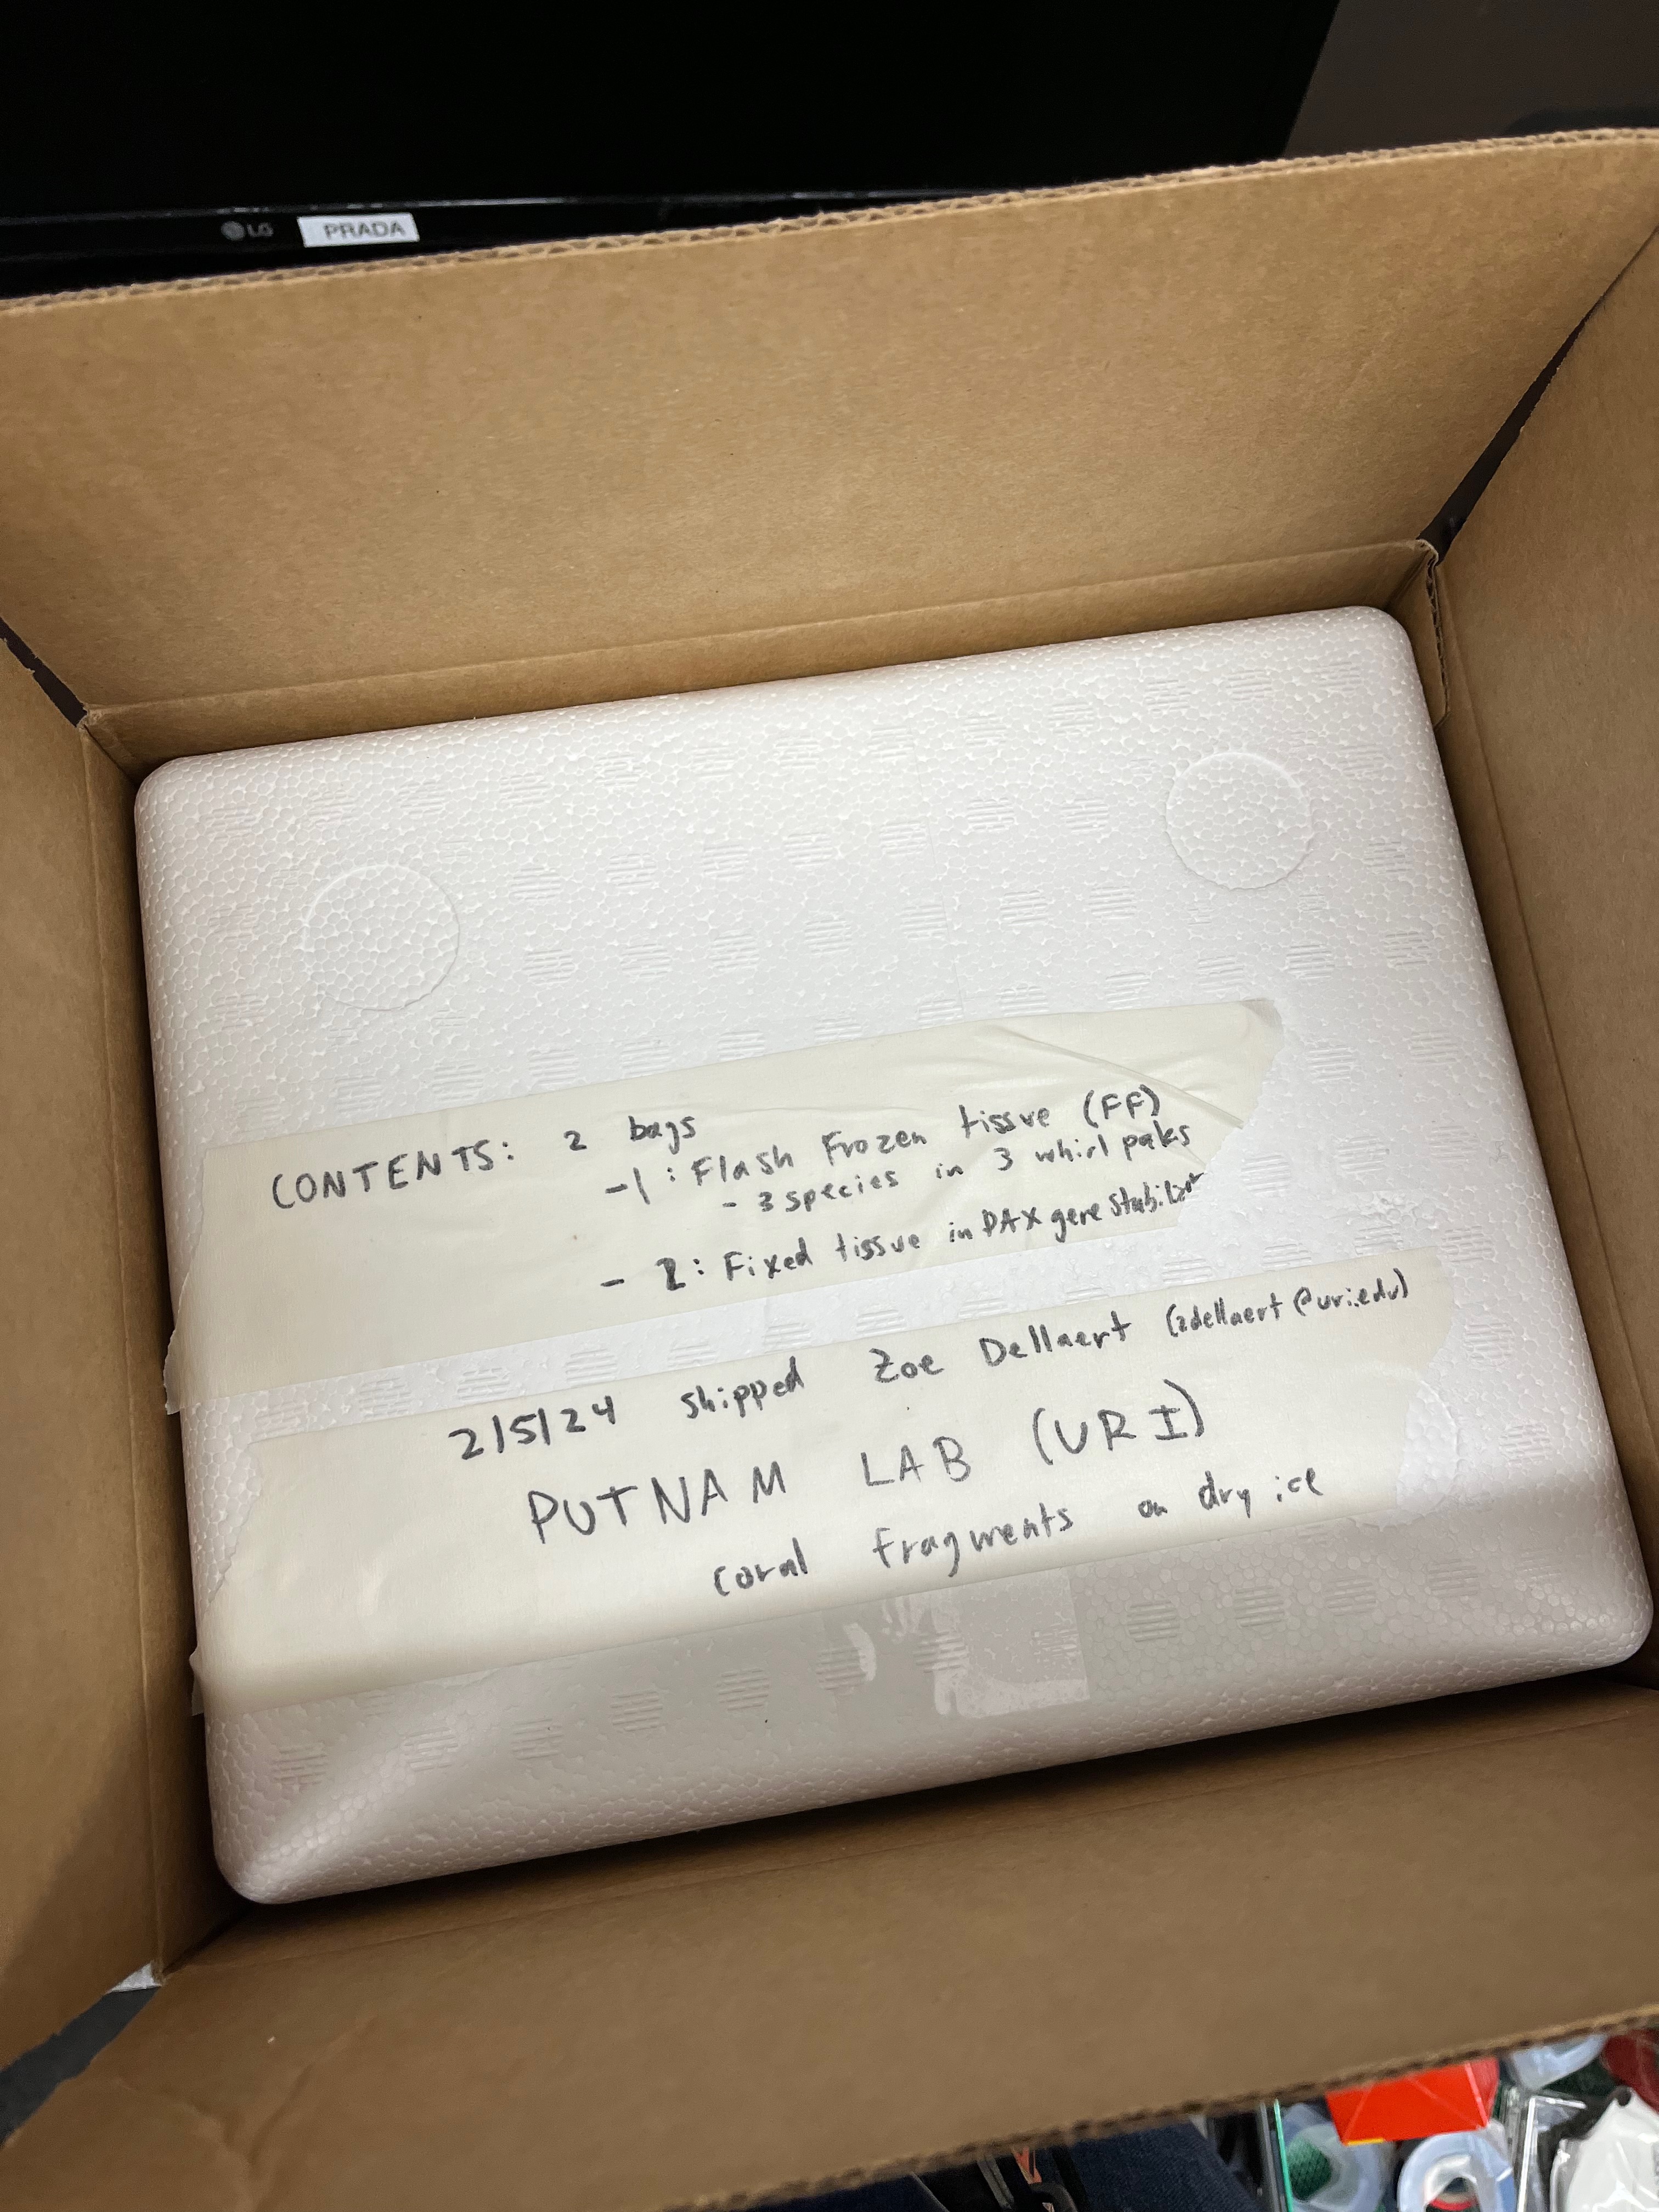 LG PRADA
CONTENTS: 2 bags
-1: Flash Frozen tissue (FF)
- 3 species in 3 whirl paks
- 2: Fixed tissue in PAXgene stabilizer
2/5/24 shipped Zoe Dellaert (zdellaert@uri.edu)
PUTNAM LAB (URI)
coral fragments on dry ice